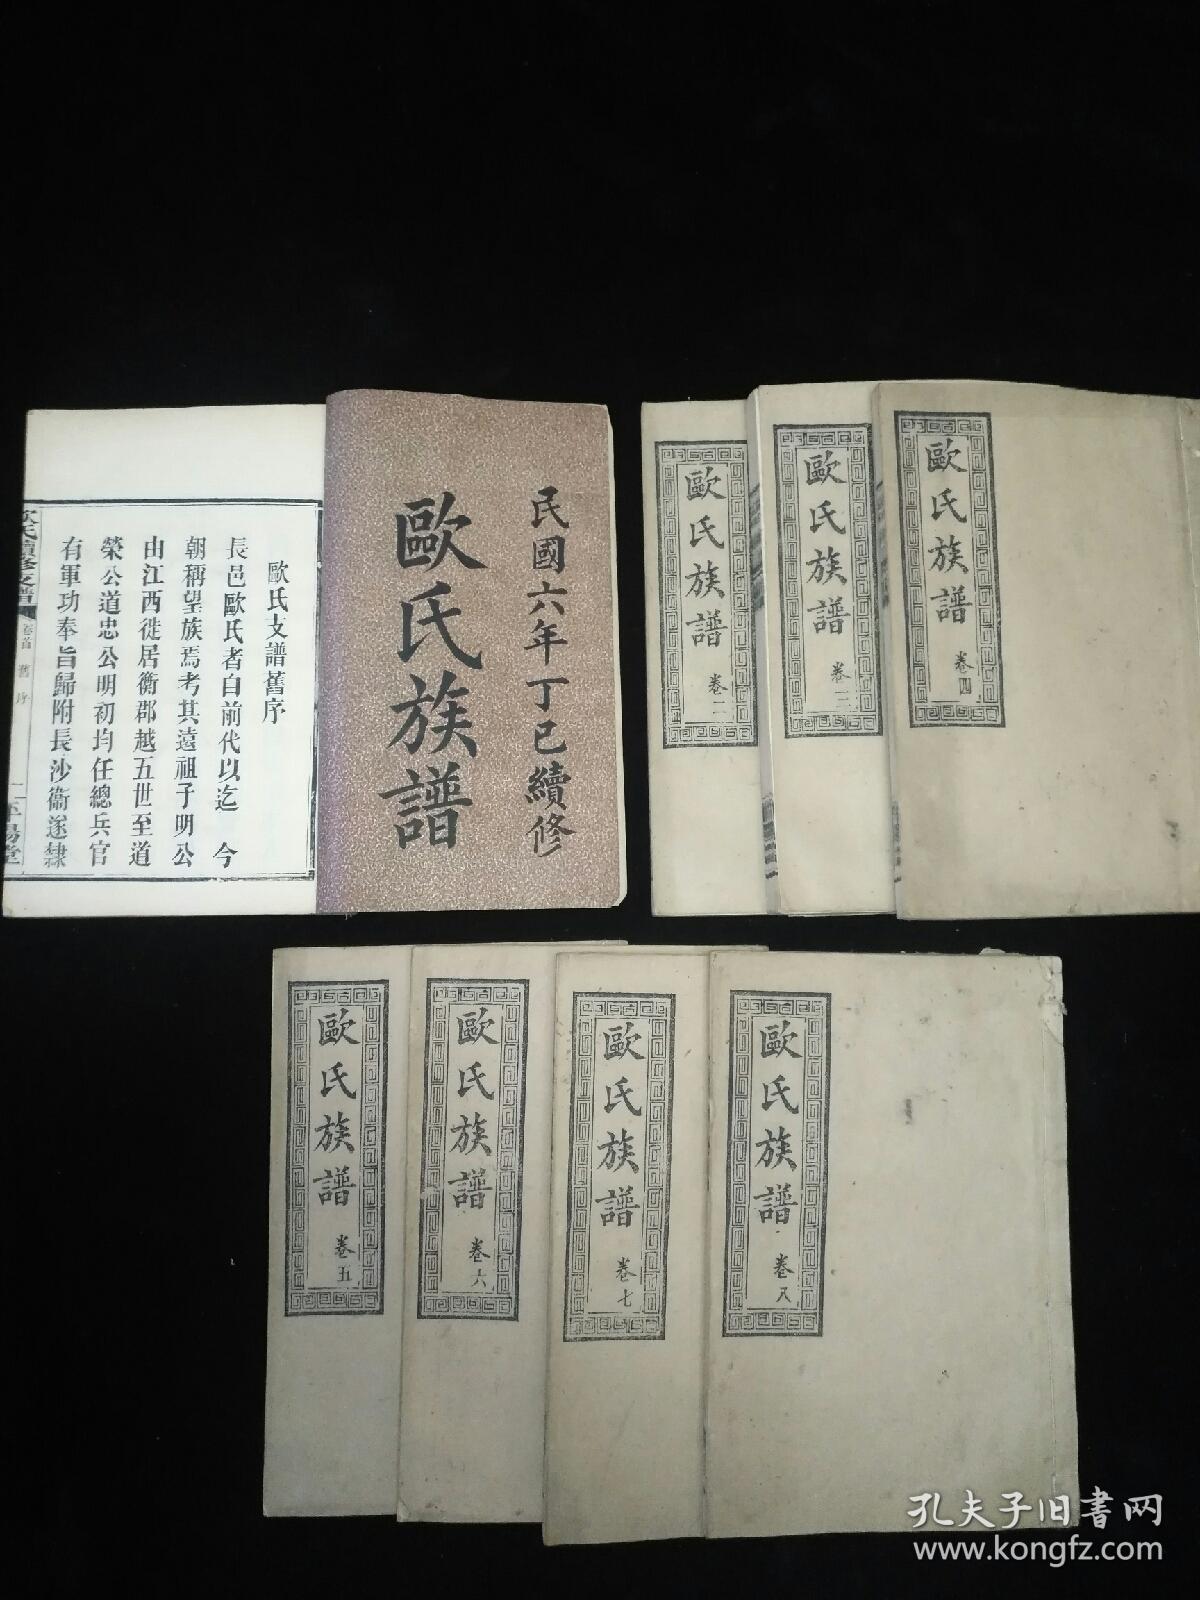 民國六年丁巳續修
歐氏族譜
歐氏支譜舊序
長邑歐氏者自前代以迄 今
朝稱望族焉考其遠祖子明公
由江西徙居衡郡越五世至道
榮公道忠公明初均任總兵官
有軍功奉旨歸附長沙衞遂隸
歐氏續修支譜
卷首 舊序
二
平陽堂
歐氏族譜 卷四
歐氏族譜 卷三
歐氏族譜 卷二
歐氏族譜 卷八
歐氏族譜 卷七
歐氏族譜 卷六
歐氏族譜 卷五
孔夫子旧書网
www.kongfz.com